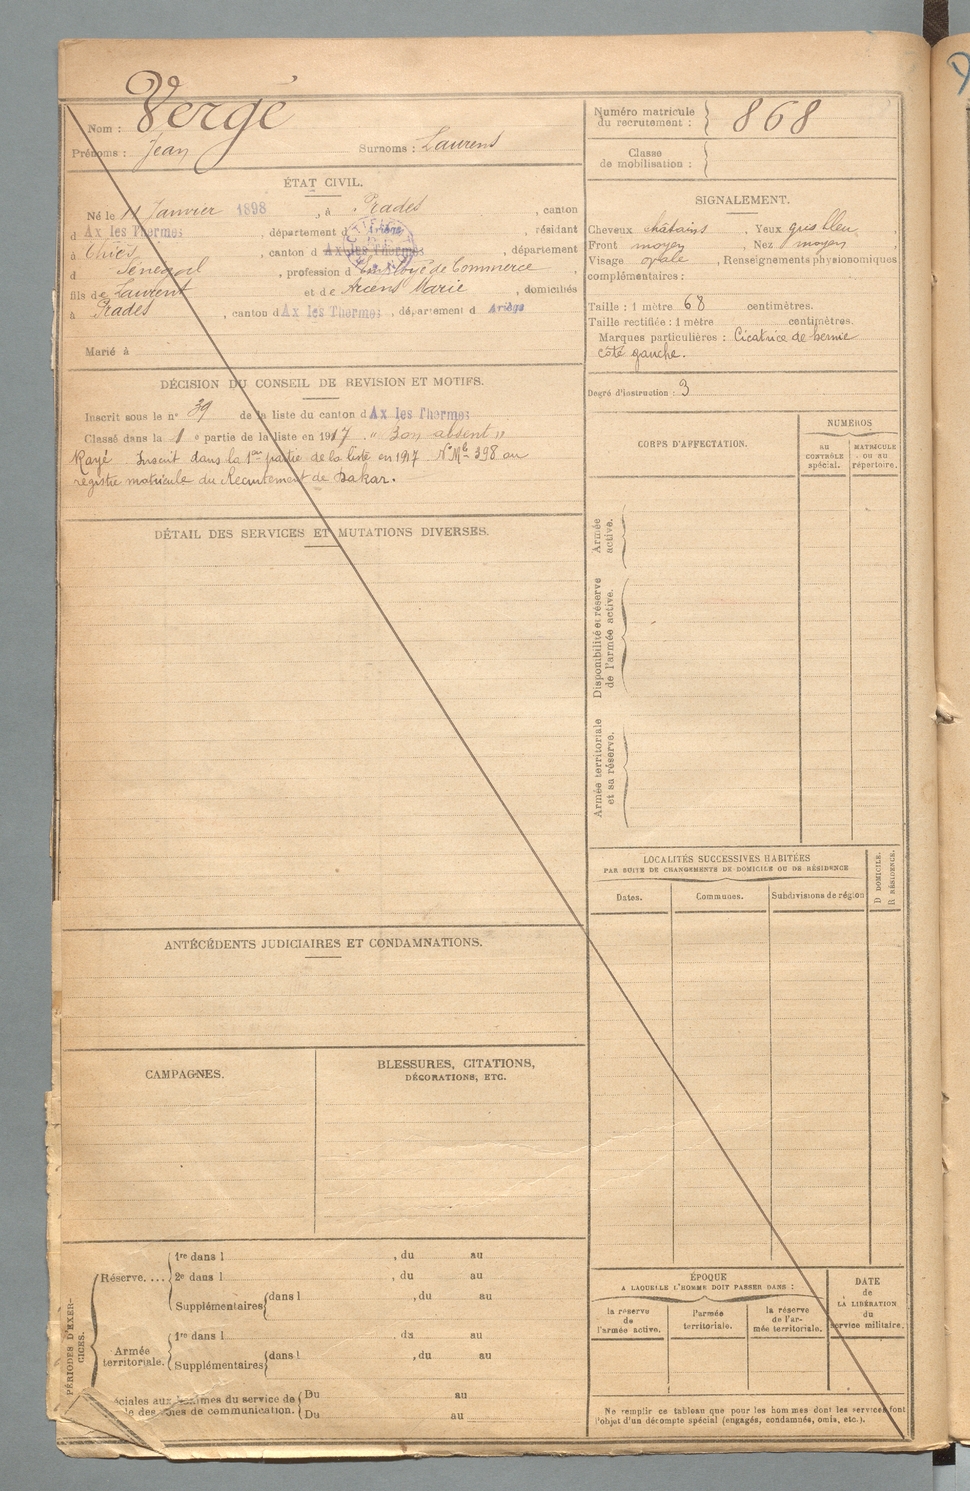 Nom : Vergé
Prénoms : Jean Surnoms : Laurent
ÉTAT CIVIL.
Né le 11 Janvier 1898, à Prades, canton
d Ax les Thermes, département d Ariège, résidant
à Thiès, canton d Ax les Thermes, département
d Sénégal, profession d Employé de Commerce
fils de Laurent et de Arcens Marie, domiciliés
à Prades, canton d Ax les Thermes, département d Ariège
Marié à
DÉCISION DU CONSEIL DE REVISION ET MOTIFS.
Inscrit sous le n° 39 de la liste du canton d Ax les Thermes
Classé dans la 1 e partie de la liste en 1917 " Bon absent "
Rayé Inscrit dans la 1re partie de la liste en 1917 N° Mle 398 au
registre matricule du Recrutement de Dakar.
DÉTAIL DES SERVICES ET MUTATIONS DIVERSES.
ANTÉCÉDENTS JUDICIAIRES ET CONDAMNATIONS.
CAMPAGNES.
BLESSURES, CITATIONS,
DÉCORATIONS, ETC.
PÉRIODES D'EXER-
CICES.
Réserve....
1re dans l , du au
2e dans l , du au
Supplémentaires dans l , du au
Armée
territoriale.
1re dans l , du au
Supplémentaires dans l , du au
éciales aux hommes du service de Du au
des voies de communication. Du au
Numéro matricule
du recrutement : 868
Classe
de mobilisation :
SIGNALEMENT.
Cheveux châtains, Yeux gris bleu,
Front moyen, Nez moyen
Visage ovale, Renseignements physionomiques
complémentaires :
Taille : 1 mètre 68 centimètres.
Taille rectifiée : 1 mètre centimètres.
Marques particulières : Cicatrice de hernie
côté gauche.
Degré d'instruction : 3
CORPS D'AFFECTATION.
NUMÉROS
AU
CONTRÔLE
spécial.
MATRICULE
ou au
répertoire.
Armée
active.
Disponibilité et réserve
de l'armée active.
Armée territoriale
et sa réserve.
LOCALITÉS SUCCESSIVES HABITÉES
PAR SUITE DE CHANGEMENTS DE DOMICILE OU DE RÉSIDENCE
Dates. Communes. Subdivisions de région
D DOMICILE.
R RÉSIDENCE.
ÉPOQUE
A LAQUELLE L'HOMME DOIT PASSER DANS :
la réserve
de
l'armée active.
l'armée
territoriale.
la réserve
de l'ar-
mée territoriale.
DATE
de
LA LIBÉRATION
du
service militaire.
Ne remplir ce tableau que pour les hommes dont les services font
l'objet d'un décompte spécial (engagés, condamnés, omis, etc.).